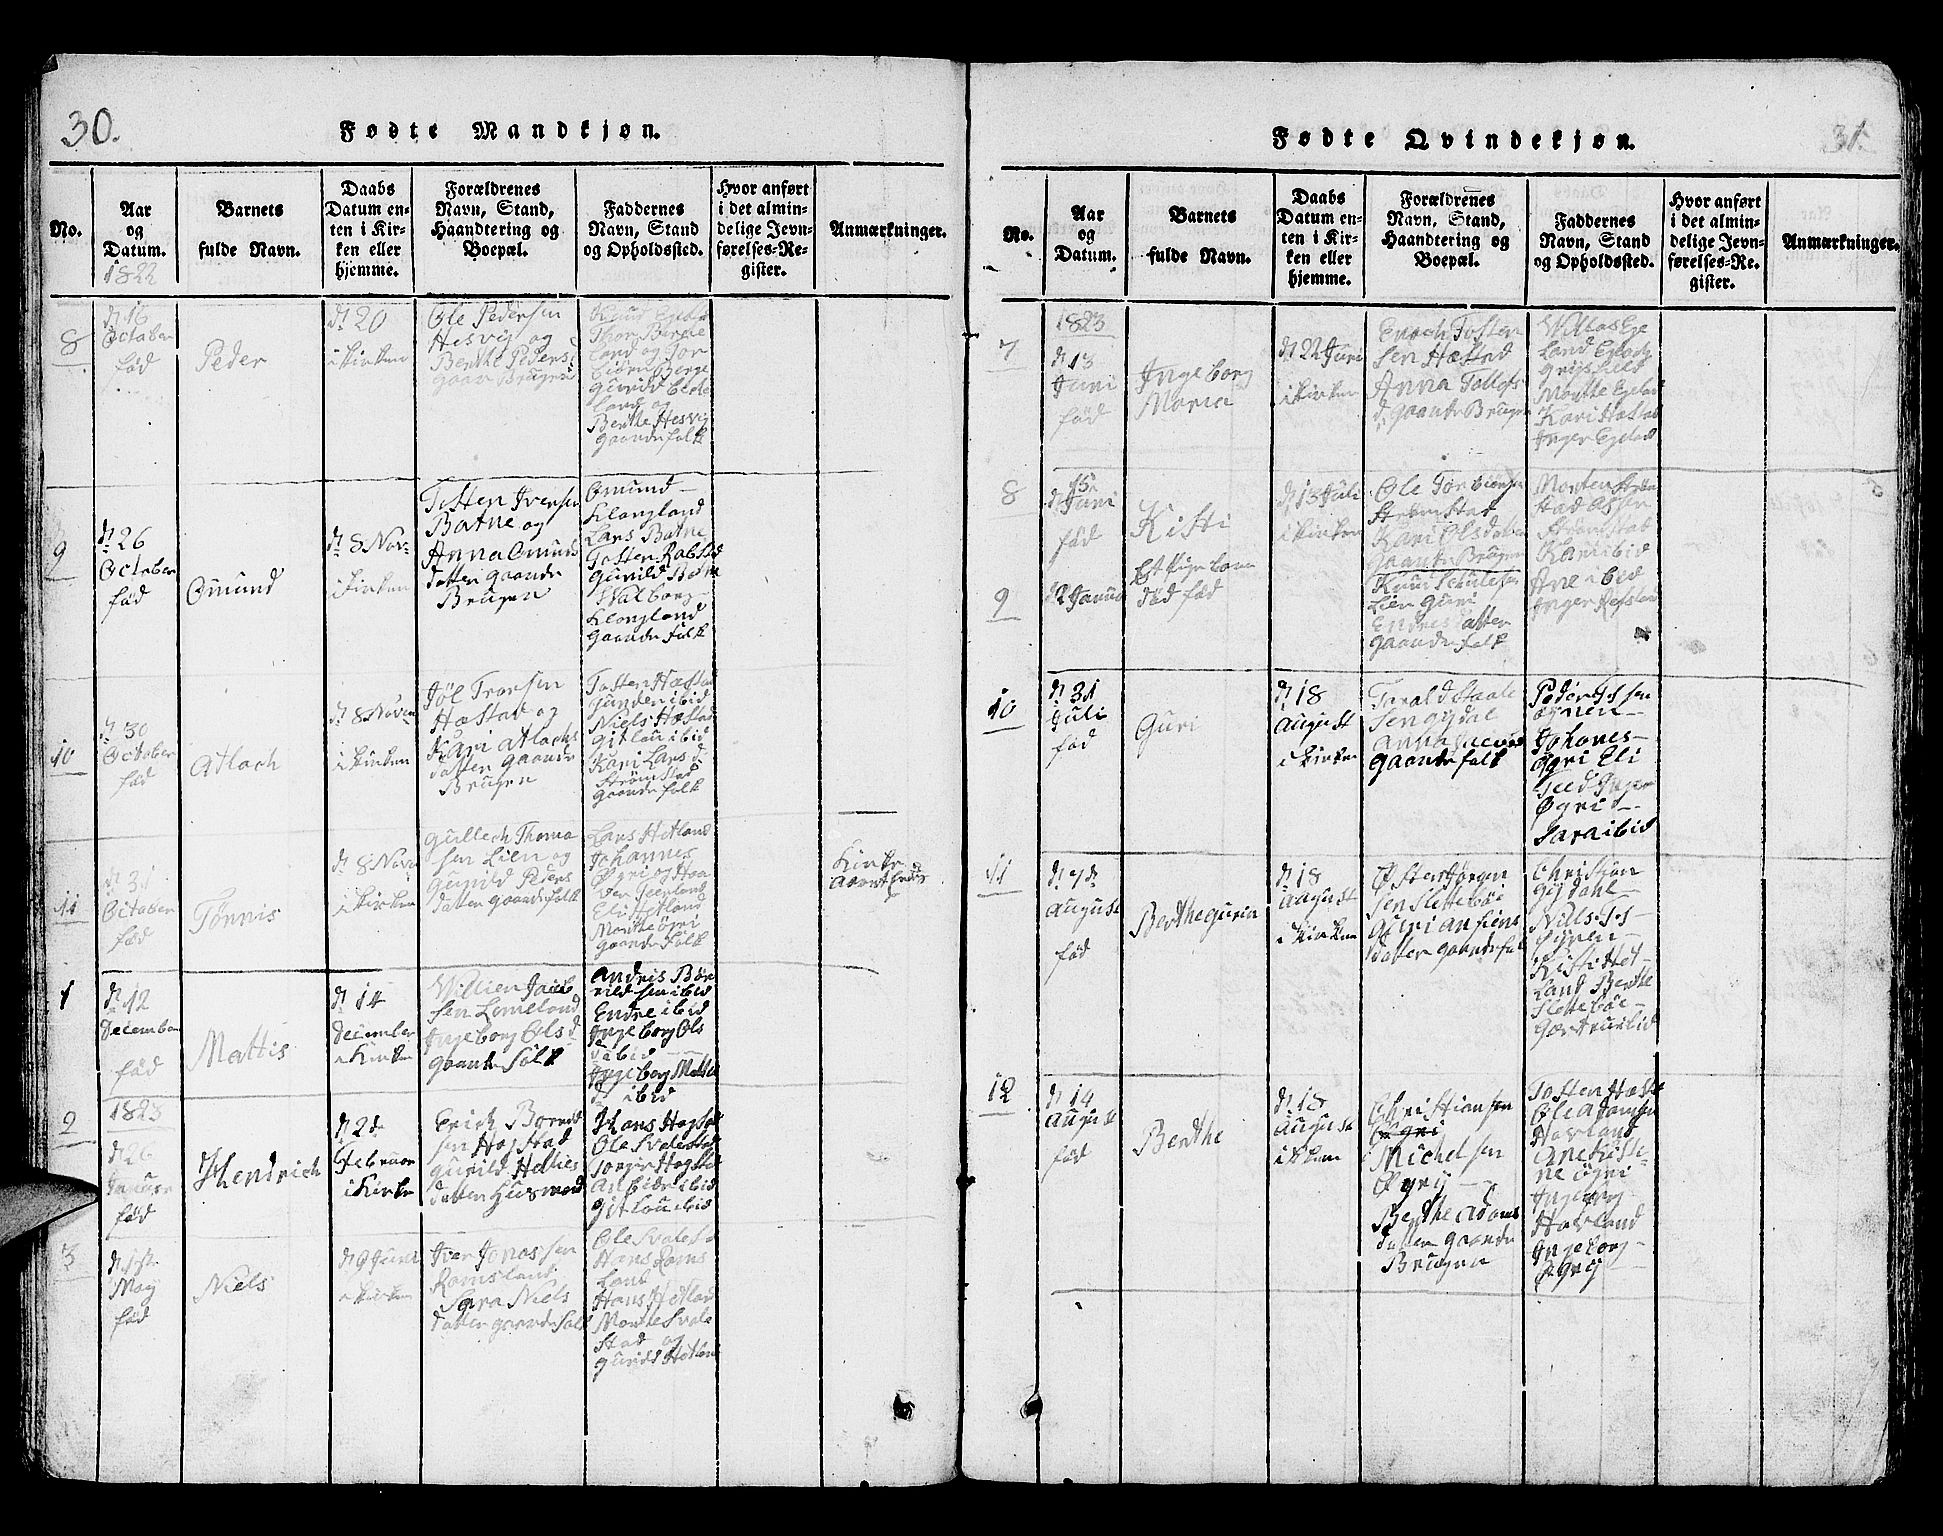 30.
Fødte Mandkjøn.
No.
Aar
og
Datum.
1822
Barnets
fulde Navn.
Daabs
Datum en-
ten i Kir-
ken eller
hjemme.
Forældrenes
Navn, Stand,
Haandtering og
Boepæl.
Faddernes
Navn, Stand
og Opholdssted.
Hvor anført
i det almin-
delige Jevn-
førelses-Re-
gister.
Anmærkninger.
8
d 16
October
fød
Peder
d 20
i kirken
Ole Pedersen
Hesvig og
Berthe Peders
gaar Brugen
Knud
Thor Berge
Land og Tor
Berge
Gunild Ege
land og
Berthe Hesvig
gaardefolk
9
d 26
October
fød
Omund
d 8 Nov
i kirken
Tosten Iversen
Batne og
Anna Omuns
datter gaarde
Brugen
Omund
Klongland
Lars Batne
Tosten Rabstad
Gunild Batne
Valborg
Klongland
gaarde folk
10
d 30
October
fød
Atlach
d 8 Novem
i kirken
Jøl Tronsen
Hæstad og
Kari Atlachs
datter gaarde
Brugen
Tosten Hæstad
Gunden ibid
Niels Hæstad
Gitlou ibid
Kari Lars d
Strømstad
gaarde folk
11
d 31
October
fød
Tønnis
d 8 Nov
i kirken
Gullech Thoma
sen Lien og
Gunild Peders
datter gaarde folk
Lars Hetland
Johannes
Øgri og
Eli Hetland
Marthe Øgri
gaarde folk
Kirke
1
d 12
December
fød
Mattis
d 14
December
i Kirken
Willien Jacob
sen Lomeland
Ingeborg Ols d
gaarde folk
Andris Bør
rildsen ibid
Endre ibid
Ingeborg Ols
d ibid
Ingeborg Mattis
d ibid
2
1823
d 26
Januar
fød
Hendrich
d 2d
Februar
i Kirken
Erich Borrild
sen Hogstad
Gunild Hellies
datter Husmand
Hans Hogstad
Ole Svalestad
Torger Hogstad
ibid
Gitlou ibid
3
d 1ste
May
fød
Niels
d 9 Juni
i kirken
Iver Jonassen
Romsland
Sara Niels
datter gaarde folk
Ole Svalesta
Hans Roms
Land
Hans Hetland
Marthe Svale
Stad og
Gunild Hetland
Fødte Qvindekjøn.
31.
No.
Aar
og
Datum.
Barnets
fulde Navn.
Daabs
Datum en-
ten i Kir-
ken eller
hjemme.
Forældrenes
Navn, Stand,
Haandtering og
Boepæl.
Faddernes
Navn, Stand
og Opholdssted.
Hvor anført
i det almin-
delige Jevn-
førelses-Re-
gister.
Anmærkninger.
7
1823
d 13
Juni
fød
Ingeborg
Maria
d 22 Juni
i kirken
Enoch Tosten
sen Hæstad
Anna Tollofs
d gaarde Brugen
Willas Ege
Land
Marthe Egeland
Kari Hæstad
Inger Egeland
8
d 15
Juni
fød
Kisti
d 13 Juli
i kirken
Ole Torbiørnsen
Strømstad
Kari Olsdatter
gaarde Brugen
Morten Strøm
stad
Strømstad
Kari ibid
Ane ibid
Inger Refsland
9
d 2 Januar
Et Pigebarn
død fød
Knud
Lien Guri
Endres datter
gaarde folk
10
d 31
Juli
fød
Guri
d 18
August
i kirken
Tarald Saale
sen Gydal
Anna
gaarde folk
Peder
Øgnen
Johanes
Øgri Eli
Inger
Øgri
Sara ibid
11
d 7de
August
fød
Berthe Gurin
d 18
August
i kirken
Østen Jøran
sen Slettebøe
Guri
datter gaarde folk
Christian
Gydahl
Nills
Øynen
Kisti Het
Land Berthe
Slettebøe
Gærtru ibid
12
d 14
August
fød
Berthe
d 18
August
i kirken
Christiansen
Øgri
Michelsen
Øgrij
Berthe Adams
datter gaarde
Brugen
Tosten Hæsta
Ole Adamsen
Hovland
Ane Kisti
ne Øgri
Ingeborg
Hovland
Ingeborg
Øgrij